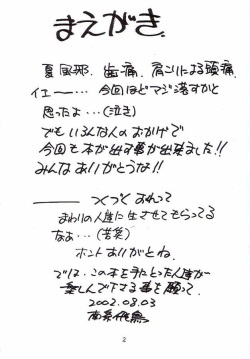 まえがき
夏風邪、歯痛、肩こりによる頭痛
イエー…今回ほどマジ落すかと
思ったよ…(泣き)
でもいろんな人のおかげで
今回も本が出す事が出来ました!!
みんなありがとうな!!
――― つくづくおれって
まわりの人達に生させてもらってる
なぁ…(苦笑)
ホントありがとね。
では、この本を手にとった人達が
楽しんで下さる事を願って。
2002.08.03
2